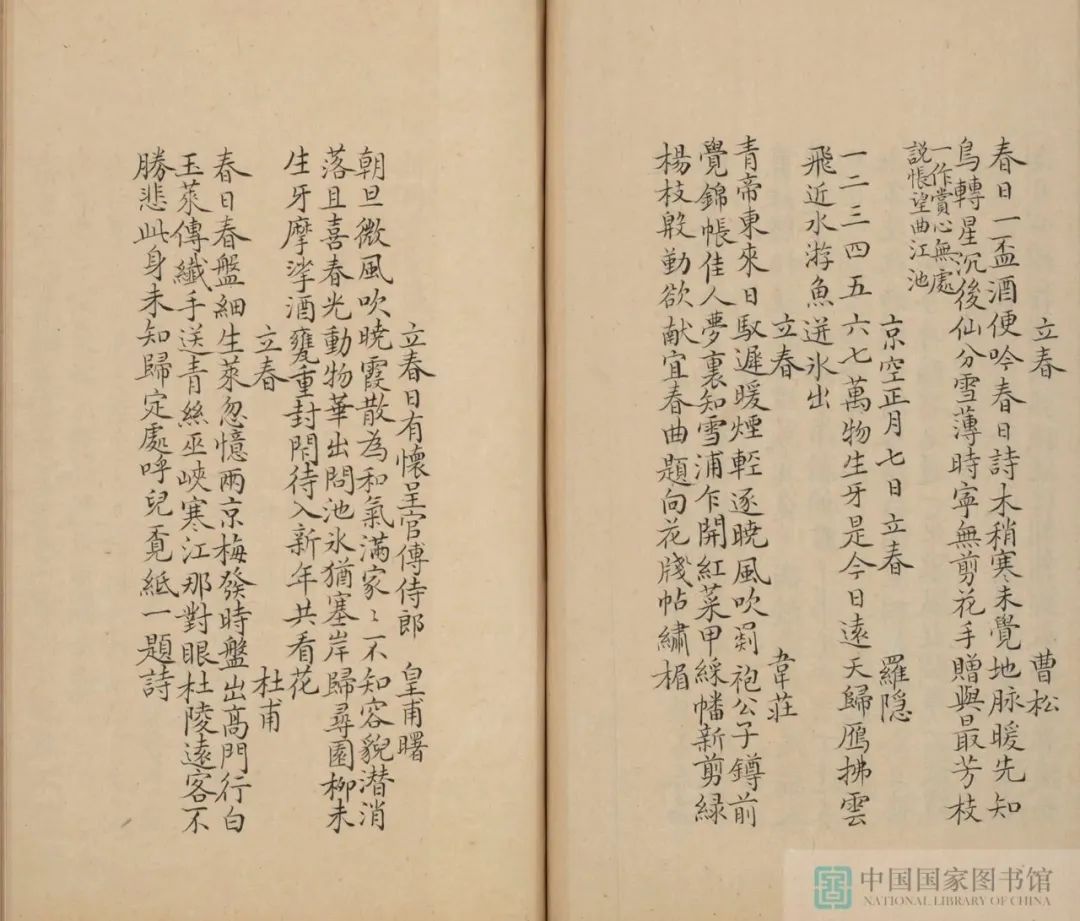 立春　曹松
春日一盃酒便吟春日詩木稍寒未覺地脉暖先知
鳥轉星沉後仙分雪薄時寧無剪花手贈與最芳枝
一作賞心無處
説悵望曲江池
京空正月七日立春　羅隐
一二三四五六七萬物生牙是今日遠天歸鴈拂雲
飛近水游魚迸氷出
立春　韋莊
青帝東來日馭遲暖煙輕逐曉風吹罽袍公子鐏前
覺錦帳佳人夢裏知雪浦乍開紅菜甲綵幡新剪緑
楊枝殷勤欲献宜春曲題向花牋帖繡楣
立春日有懷呈官傅侍郎　皇甫曙
朝旦微風吹曉霞散為和氣滿家〻不知容貌潜消
落且喜春光動物華出問池氷猶塞岸歸尋園柳未
生牙摩挲酒甕重封閇待入新年共看花
立春　杜甫
春日春盤細生菜忽憶兩京梅發時盤出高門行白
玉菜傳纎手送青絲巫峽寒江那對眼杜陵遠客不
勝悲此身未知歸定處呼兒覔紙一題詩
中国国家图书馆
NATIONAL LIBRARY OF CHINA